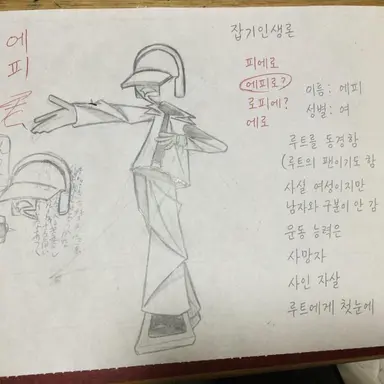 잡기인생론
에
피
피에로
에피로?
로피에?
에로
이름: 에피
성별: 여
루트를 동경함
(루트의 팬이기도 함
사실 여성이지만
남자와 구분이 안 감
운동 능력은
사망자
사인 자살
루트에게 첫눈에